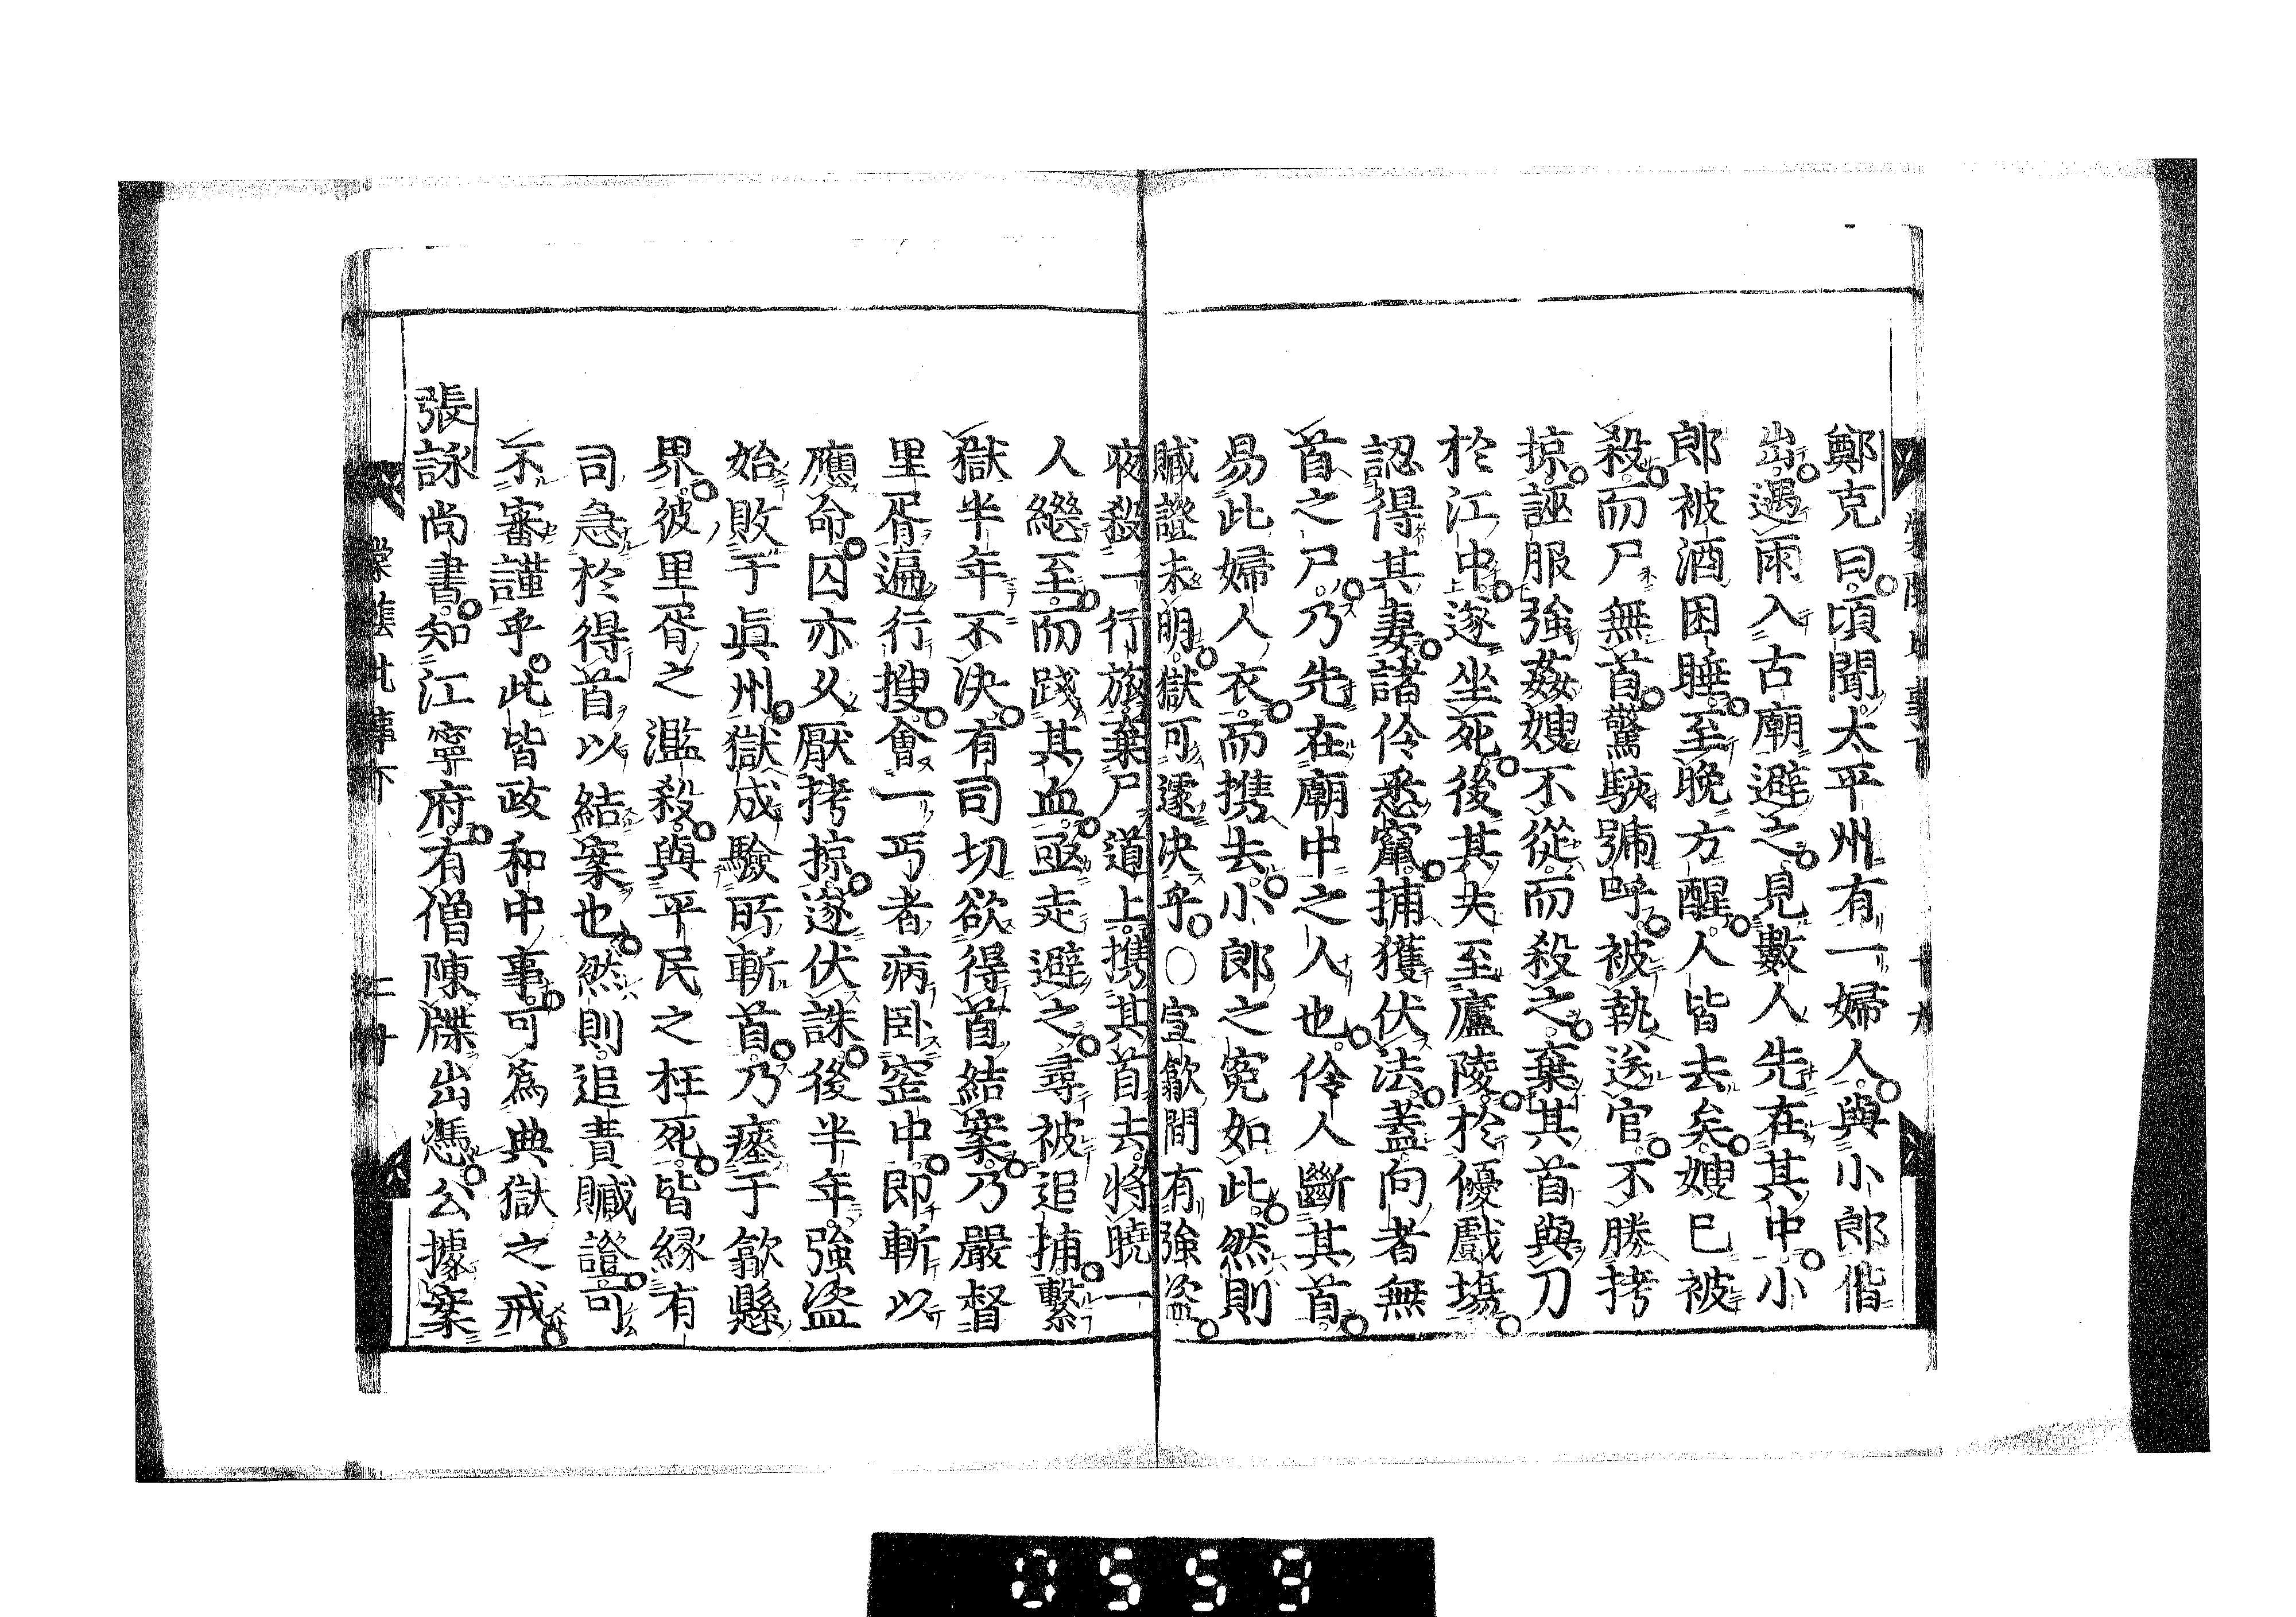 鄭克曰頃聞太平州有一婦人與小郎偕
出遇雨入古廟避之見數人先在其中小
郎被酒困睡至晚方醒人皆去矣嫂已被
殺而尸無首驚駭號呼被執送官不勝拷
掠誣服強姦嫂不從而殺之棄其首與刀
於江中遂坐死後其夫至廬陵於優戲場
認得其妻諸伶悉竄捕獲伏法蓋向者無
首之尸乃先在廟中之人也伶人斷其首
易此婦人衣而携去小郎之寃如此然則
贓證未明獄可遽决乎○宣歙間有強盜
夜殺一行旅棄尸道上携其首去將曉一
人繼至而踐其血亟走避之尋被追捕繫
獄半年不决有司切欲得首結案乃嚴督
里胥遍行搜會一丐者病卧窑中即斬以
應命囚亦久厭拷掠遂伏誅後半年強盜
始敗于眞州獄成驗所斬首乃瘞于歙縣
界彼里胥之濫殺與平民之枉死皆緣有
司急於得首以結案也然則追責贓證可
不審謹乎此皆政和中事可爲典獄之戒
張詠尚書知江寧府有僧陳牒出憑公據案
棠陰比事下
二十